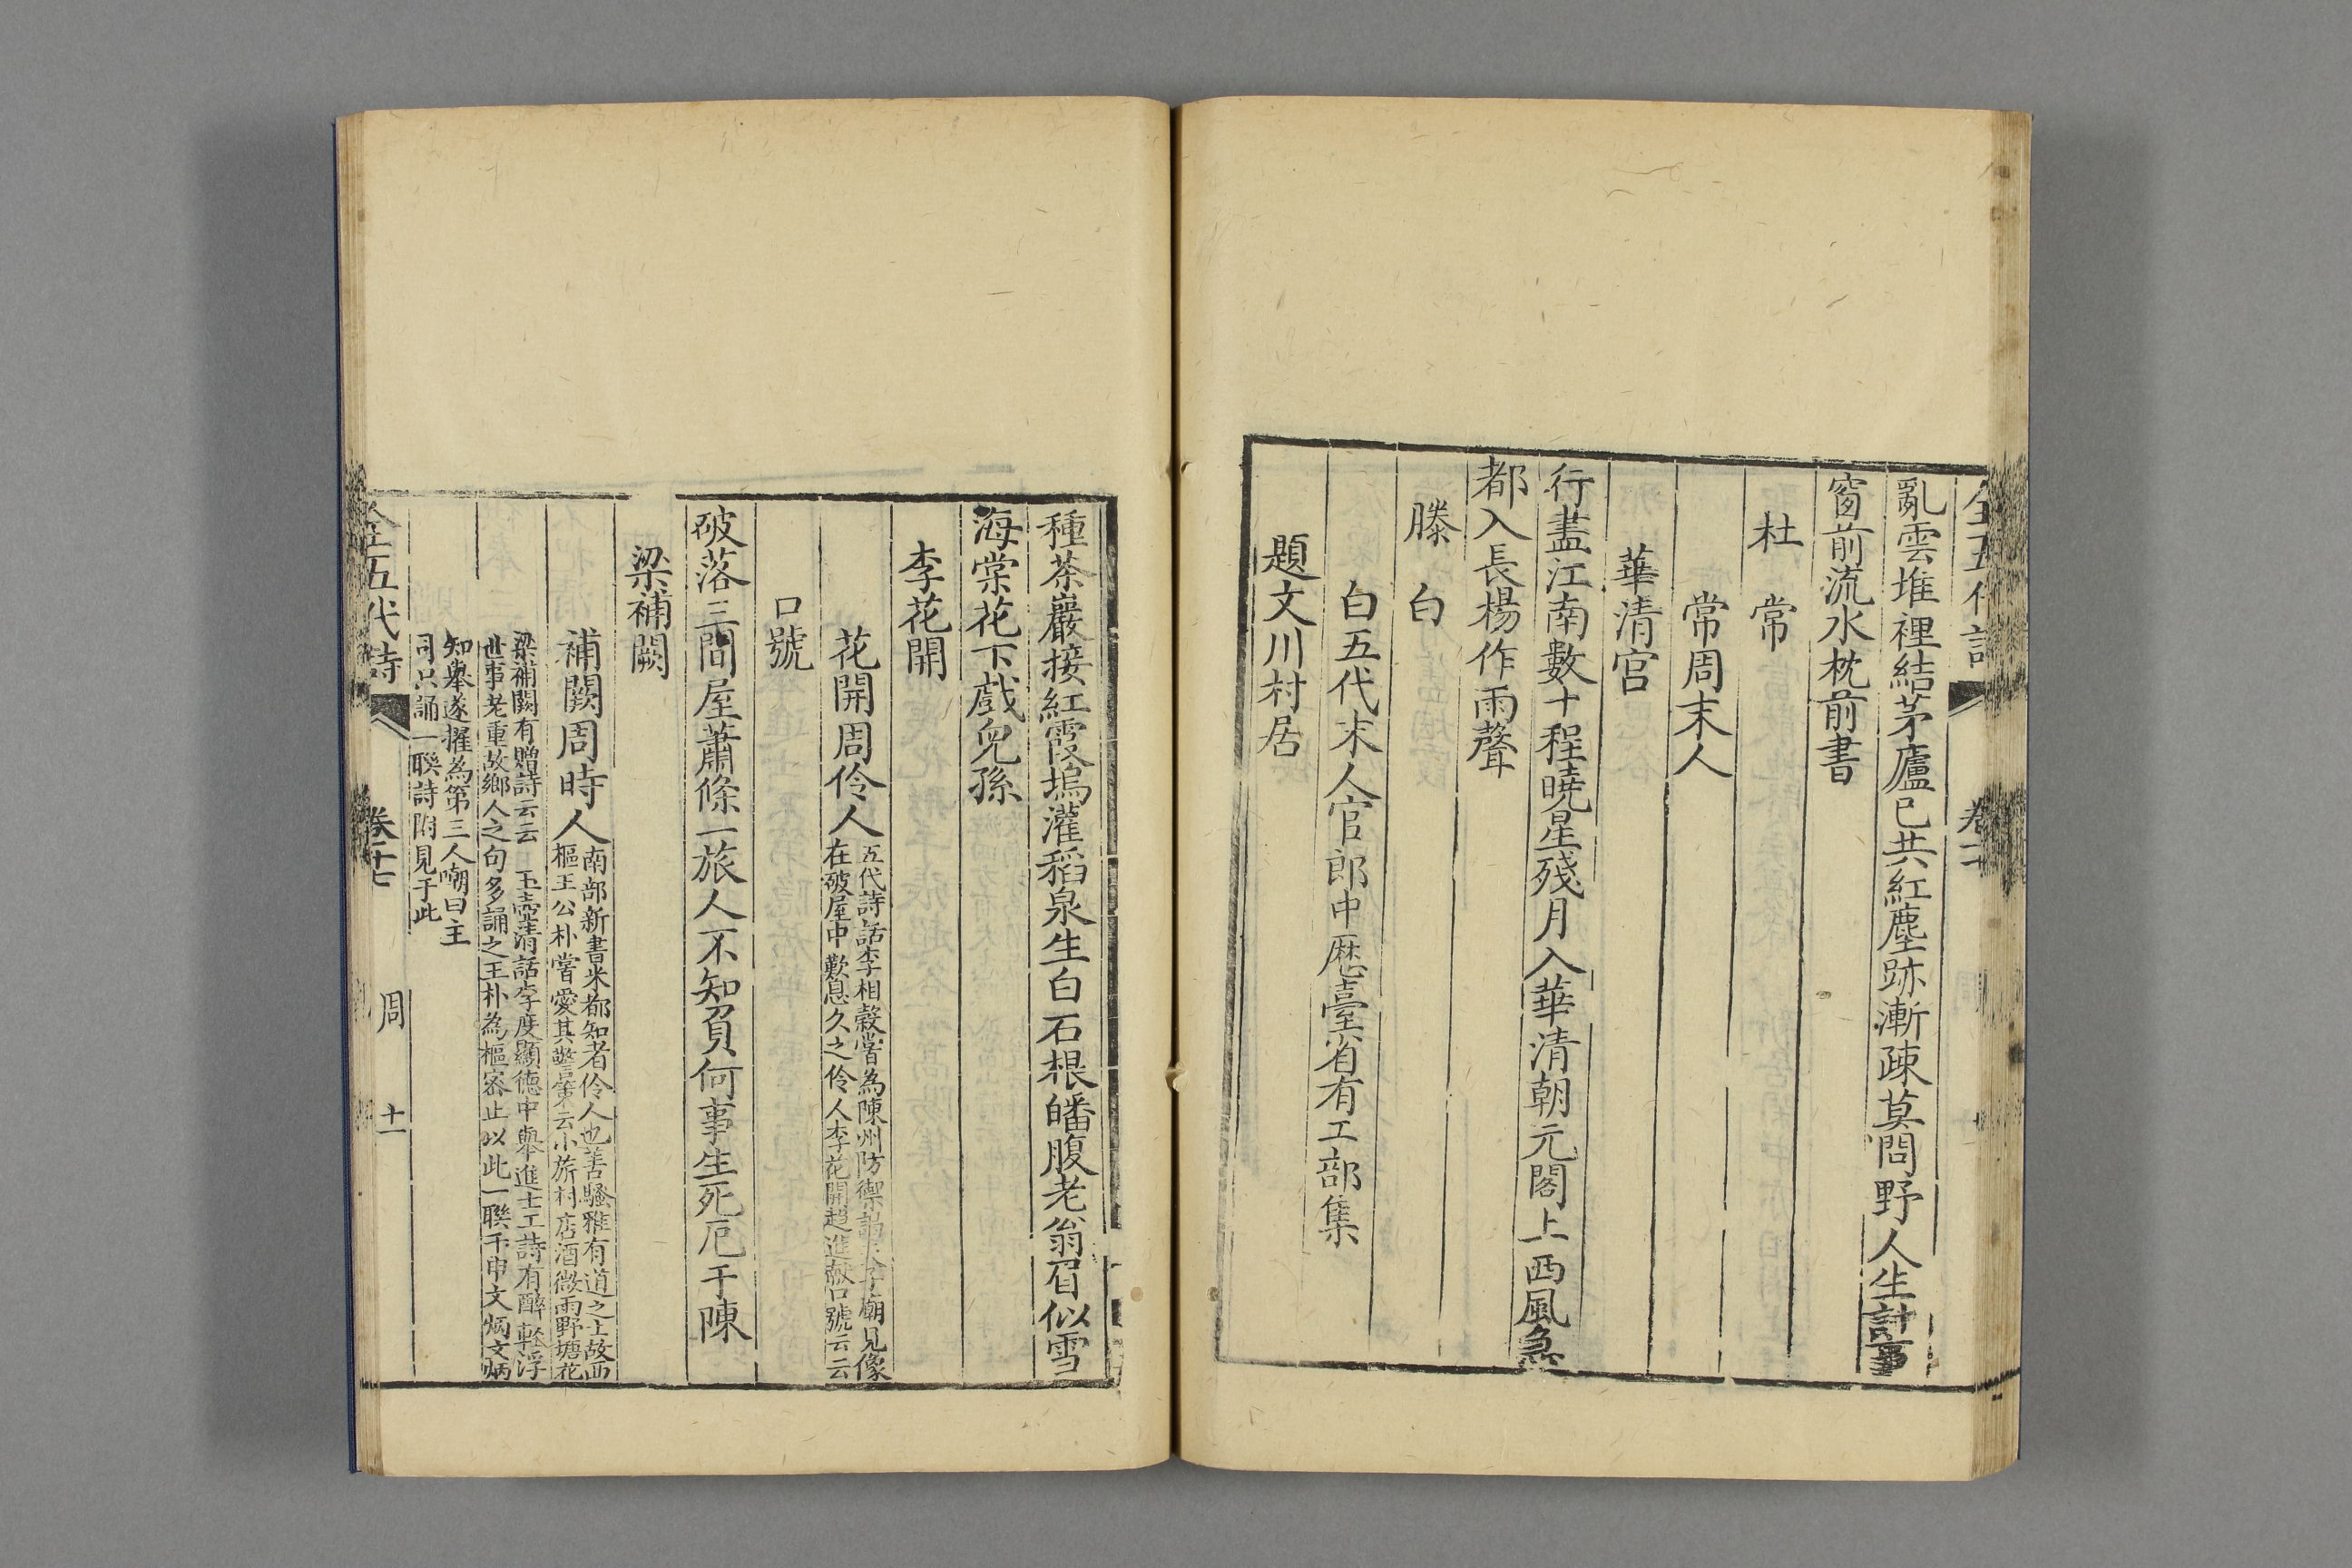 全五代詩 卷二
亂雲堆裡結茅廬已共紅塵跡漸疎莫問野人生計事
窗前流水枕前書
杜常
常周末人
華清宫
行盡江南數十程曉星殘月入華清朝元閣上西風急
都入長楊作雨聲
滕白
白五代末人官郎中歷臺省有工部集
題文川村居
種茶巖接紅霞塢灌稻泉生白石根皤腹老翁眉似雪
海棠花下戲兒孫
李花開
花開周伶人五代詩話李相榖嘗為陳州防禦謁夫子廟見像
在破屋中歎息久之伶人李花開趨進獻口號云云
口號
破落三間屋蕭條一旅人不知負何事生死厄于陳
梁補闕
補闕周時人南部新書米都知者伶人也善騷雅有道之士故西
樞王公朴嘗愛其警策云小旅村店酒微雨野塘花
梁補闕有贈詩云云 玉壺清話李度顯德中舉進士工詩有醉輕浮
世事老重故鄉人之句多誦之王朴為樞密止以此一聯于申文炳文炳
知舉遂擢為第三人嘲曰主
司只誦一聯詩附見于此
全五代詩 卷十七 周 十一